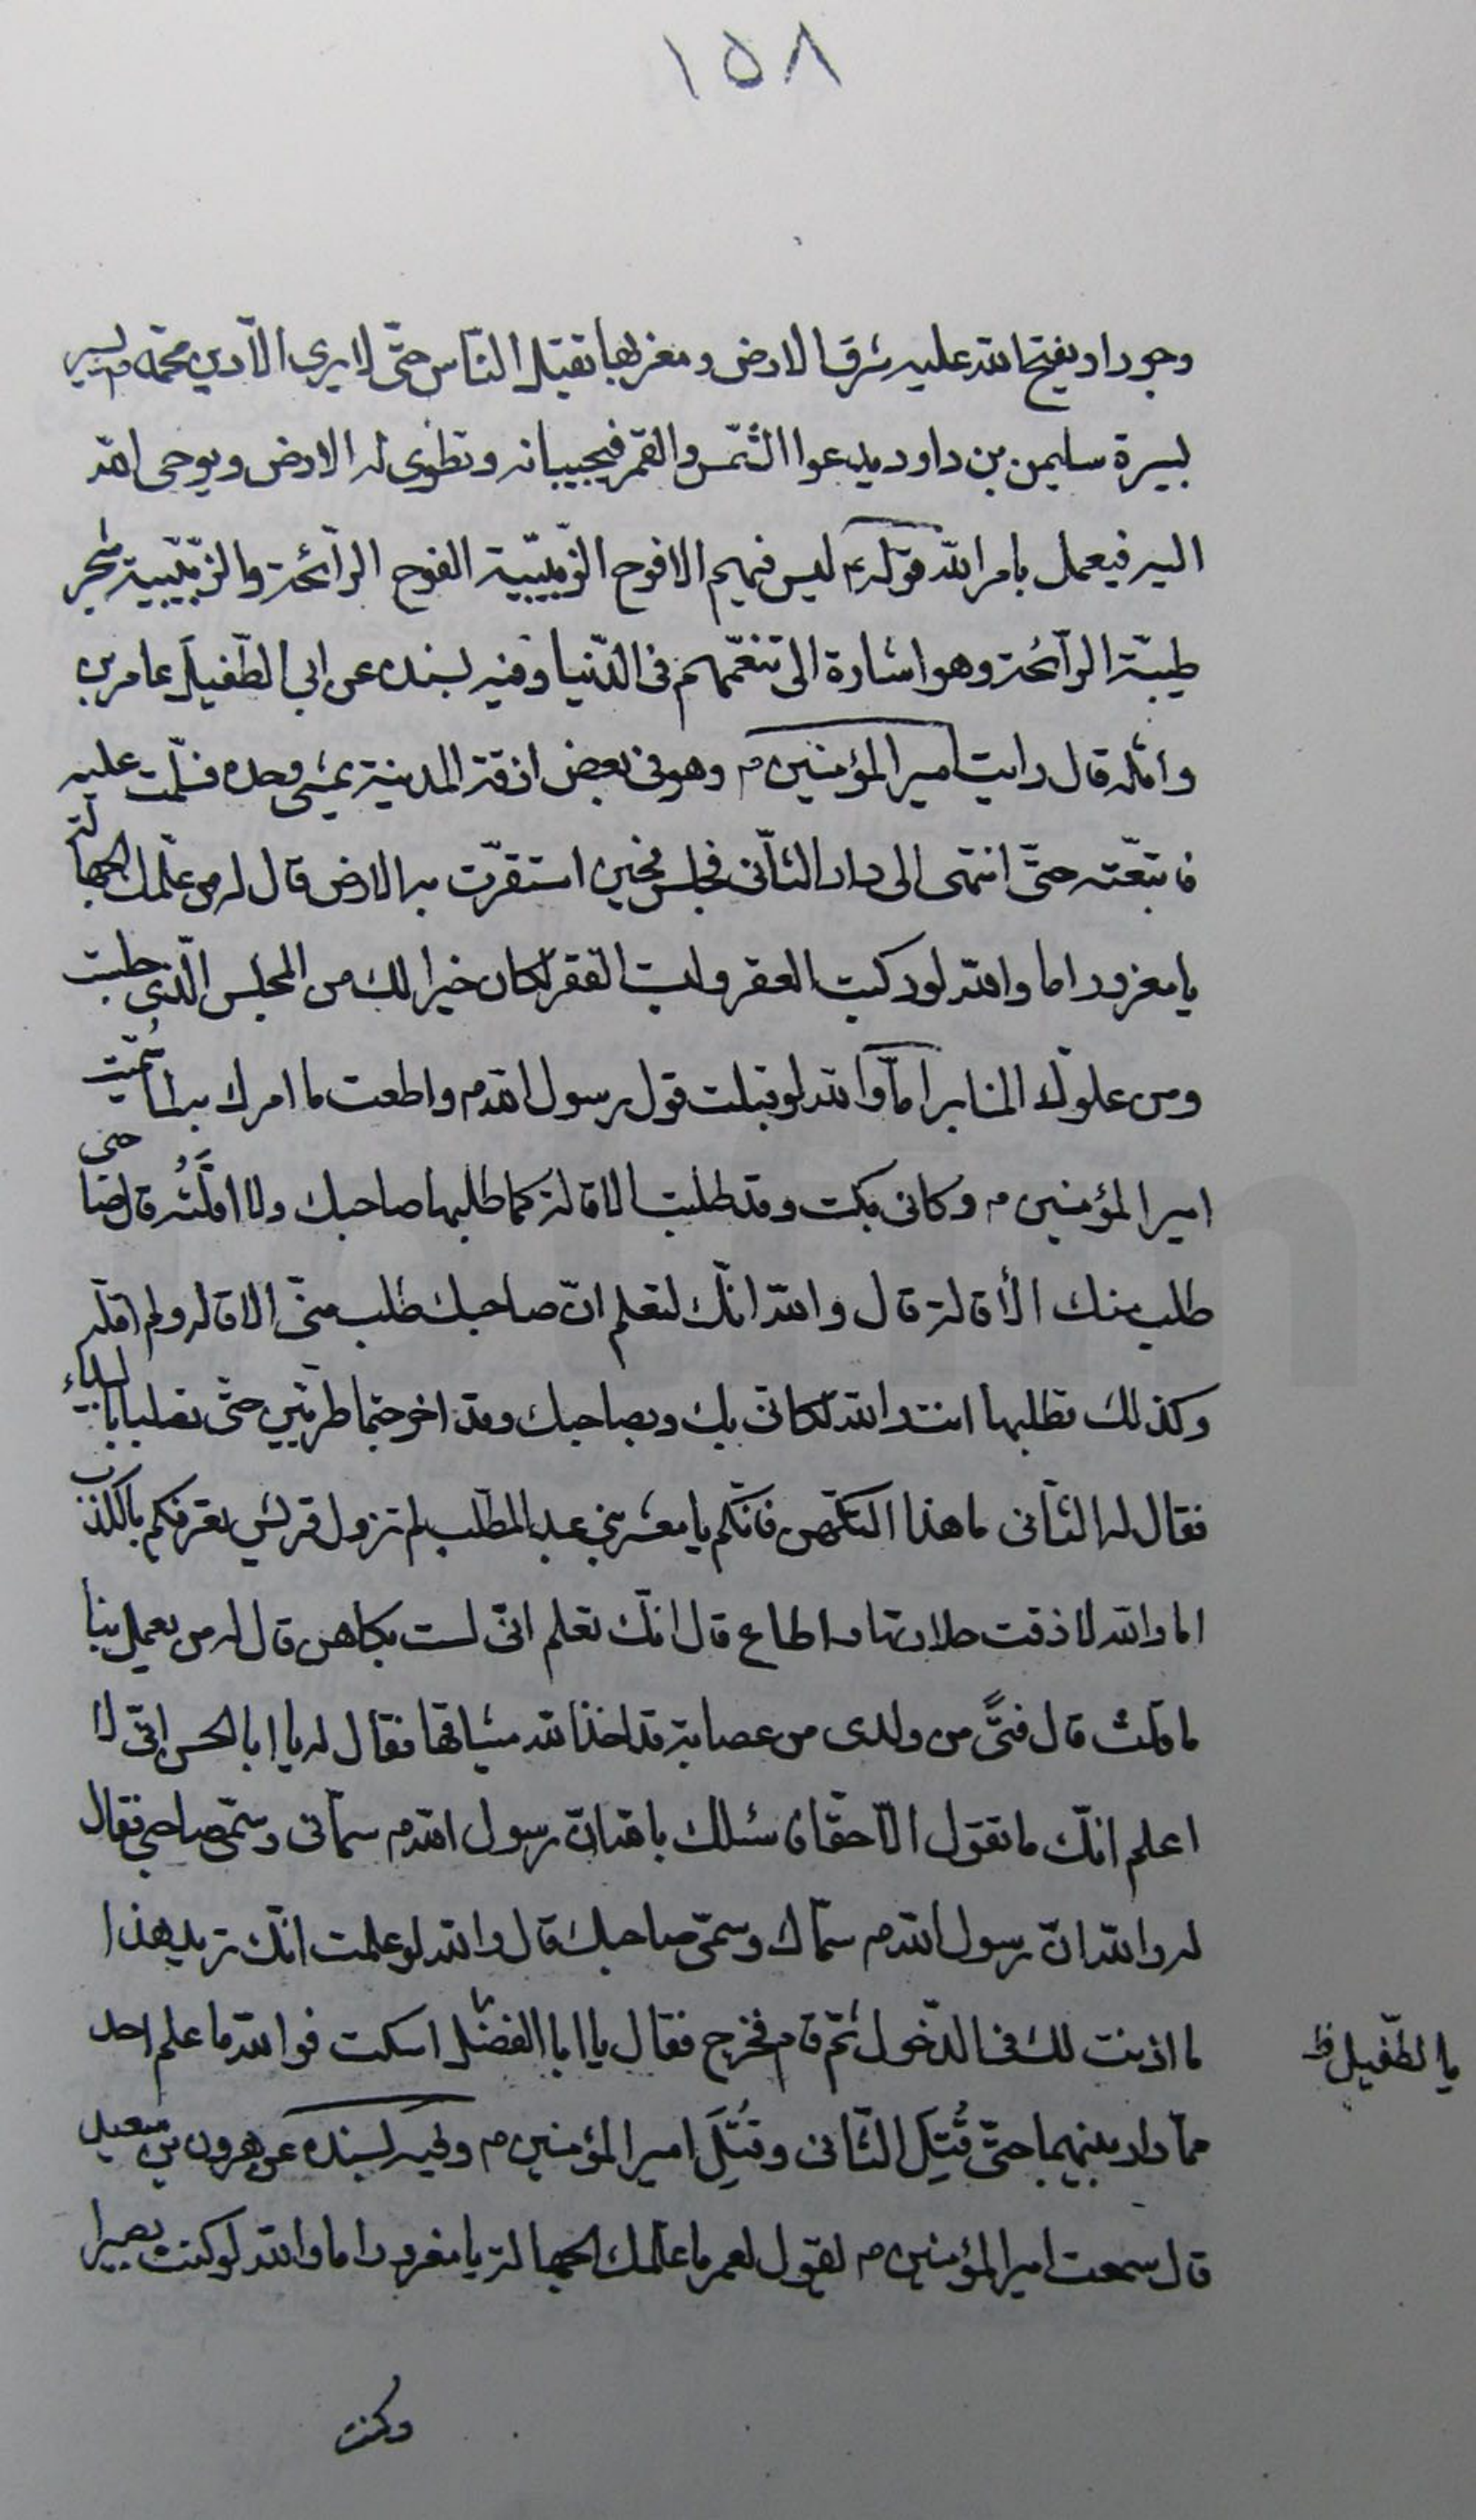 ١٥٨
وجورا ويفتح الله عليه شرق الارض ومغربها يقتل الناس حتى لا يرى الا دين محمد م يسير
بسيرة سليمن بن داود يدعوا الشمس والقمر فيجيبانه وتطوى له الارض ويوحى الله
اليه فيعمل بامر الله قوله م ليس فيهم الا فوح الزبيبية الفوح الرائحة والزبيبية شجر
طيبة الرائحة وهو اشارة الى تنعمهم فى الدنيا وفيه بسنده عن ابى الطفيل عامر بن
واثله قال رايت امير المؤمنين م وهو فى بعض ازقة المدينة يمشى وحده فسلمت عليه
فاتبعته حتى انتهى الى دار الثانى فجلس فحين استقرت به الارض قال له من علمك الجهالة
يا مغرور اما والله لو ركبت العقر ولبست الفقر لكان خيرا لك من المجلس الذى جلست
ومن علوك المنابر اما والله لو قبلت قول رسول الله م واطعت ما امرك به لما سميت
امير المؤمنين م وكانى بك وقد طلبت الاقالة كما طلبها صاحبك ولا اقلته قال صاحبى
طلب منك الأقالة قال والله انك لتعلم ان صاحبك طلب منى الاقاله ولم اقله
وكذلك تطلبها انت والله لكانى بك وبصاحبك وقد اخرجتما طريين حتى تصلبا بالبيداء
فقال له الثانى ما هذا التكهن فانكم يا معشر بنى عبد المطلب لم تزول قريش تعرفكم بالكذب
اما والله لا ذقت حلاوتها واطاع قال انك تعلم انى لست بكاهن قال له من يعمل بنا
ما قلت قال فتًى من ولدى من عصابة قد اخذ الله ميثاقها فقال له يا ابا الحسن انى لا
اعلم انك ما تقول الا حقا فاسئلك بالله ان رسول الله م سمانى وسمى صاحبى فقال
له والله ان رسول الله م سماك وسمى صاحبك قال والله لو علمت انك تريد هذا
ما اذنت لك فى الدخول ثم قام فخرج فقال يا ابا الفضل اسكت فوالله ما علم احد
يا الطفيل ظ
مما دار بينهما حتى قُتِلَ الثانى وقُتِلَ امير المؤمنين م وفيه بسنده عن هرون بن سعيد
قال سمعت امير المؤمنين م يقول لعمر ما علمك الجهالة يا مغرور اما والله لو كنت بصيرا
وكنت